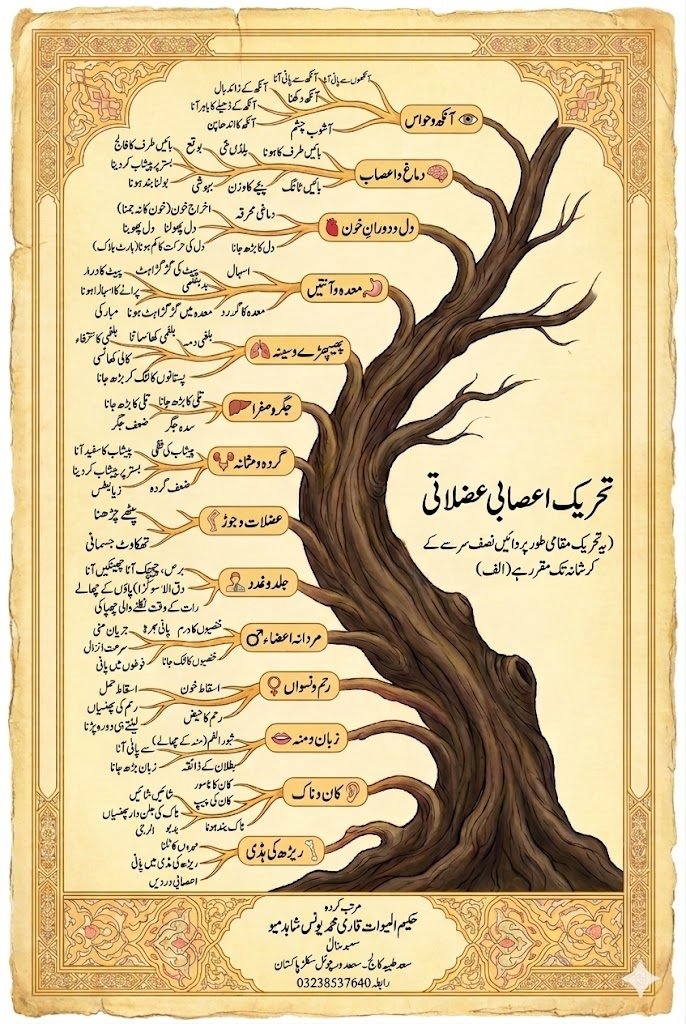 آنکھ و حواس
آنکھوں سے پانی آنا
آنکھ سے پانی آنا
آنکھ کے زائد بال
آنکھ دکھنا
آنکھ کے ڈھیلے کا باہر آنا
آشوب چشم
آنکھ کا اندھا پن
دماغ و اعصاب
بائیں طرف کا ہونا
بائیں طرف کا فالج
بستر پر پیشاب کر دینا
بائیں ٹانگ
بچے کا وزن
بیہوشی
بولنا بند ہونا
دل و دوران خون
دماغی محرقہ
اخراج خون (خون کا نہ جمنا)
دل پھولنا
دل کا بڑھ جانا
دل کی حرکت کا کم ہونا (ہارٹ بلاک)
معدہ و آنتیں
اسہال
پیٹ کی گڑگڑاہٹ
پیٹ کا درد
بدہضمی
معدہ میں گڑگڑاہٹ ہونا
پھیپھڑے و سینہ
بلغمی دمہ
بلغمی کھانسا
کالی کھانسی
پستانوں کا لٹک کر بڑھ جانا
جگر و صفرا
تلی کا بڑھ جانا
تلی کا بڑھ جانا
سدہ جگر
ضعف جگر
گردہ و مثانہ
پیشاب کی
پیشاب کا سفید آنا
بستر پر پیشاب کر دینا
ضعف گردہ
عضلات و جوڑ
پٹھے چڑھنا
تھکاوٹ جسمانی
تحریک اعصابی عضلاتی
(یہ تحریک مقامی طور پر دائیں نصف سر سے کے
کر شانہ تک مقرر ہے (الف)
جلد و غدد
برص، چیچک آنا چھینکیں آنا
پاؤں کے چھالے
رات کے وقت نکلنے والی چھپاکی
مردانہ اعضاء
خصیوں کا درم
پانی بھرنا
جریان منی
سرعت انزال
خصیوں کا لٹک جانا
فوطوں میں پانی
رحم و نسواں
اسقاط خون
اسقاط حمل
رحم کی پھنسیاں
رحم کا حیض
لیٹتے ہی دورہ پڑنا
زبان و منہ
ثبور الفم (منہ کے چھالے)
سے پانی آنا
بطلان کے ذائقہ
زبان بڑھ جانا
کان و ناک
کان کا ناسور
شائیں شائیں
کان کی پیپ
ناک کی جلن دار پھنسیاں
ناک بند ہونا
بدبو
الرجی
ریڑھ کی ہڈی
مہروں کا ٹلنا
ریڑھ کی ہڈی میں پانی
اعصابی دردیں
مرتب کردہ
حکیم المیوات قاری محمد یونس شاہد میو
سعد طبیہ کالج۔ سعد ورچوئل سکلز پاکستان
رابطہ 03238537640